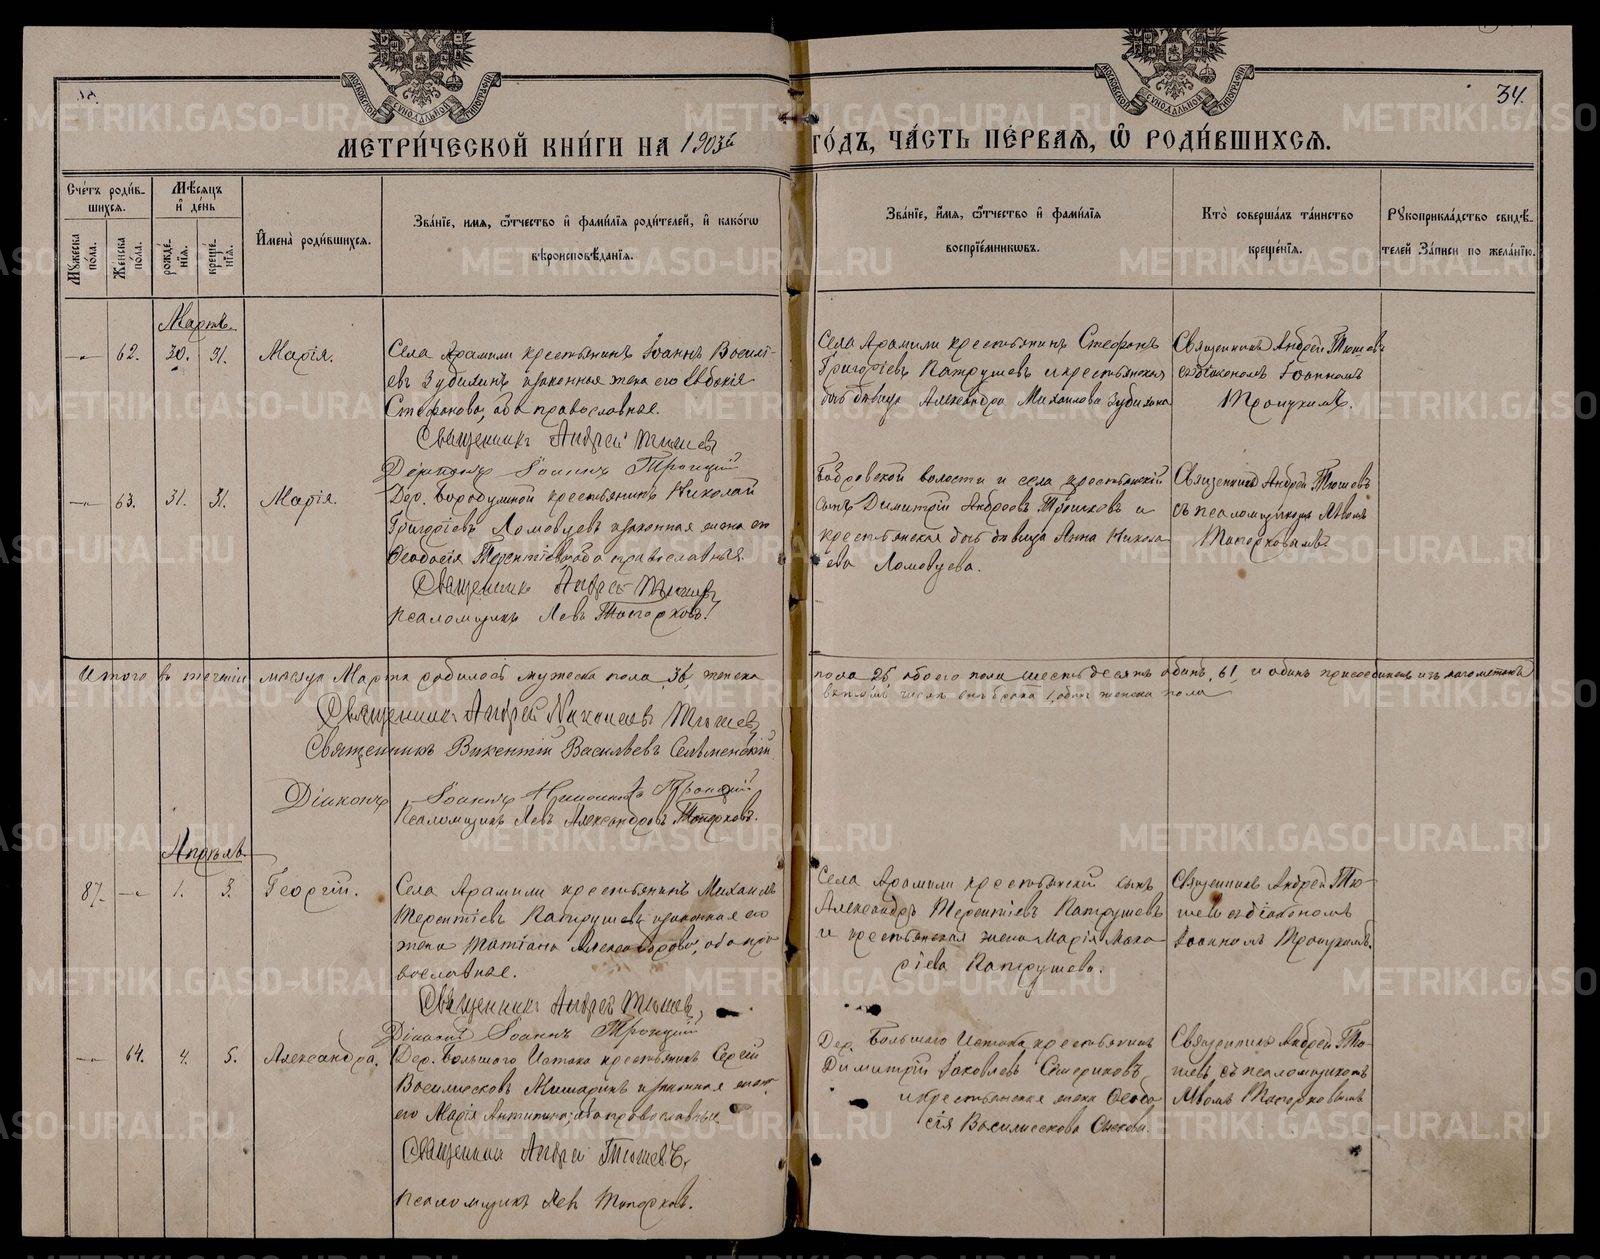 34.
МОСКОВСКОЙ СѴНОДАЛЬНОЙ ТИПОГРАФІИ
МОСКОВСКОЙ СѴНОДАЛЬНОЙ ТИПОГРАФІИ
МЕТРИ́ЧЕСКОЙ КНИ́ГИ НА 1903й ГО́ДЪ, ЧА́СТЬ ПЕ́РВАЯ, Ѡ҆ РОДИ́ВШИХСЯ.
Сче́тъ роди́в-
шихся.
Мꙋ́жеска по́ла.
Же́нска по́ла.
Мѣ́сяцъ
и҆ де́нь
рожде́нїя.
креще́нїя.
И҆мена̀ роди́вшихся.
Зва́нїе, и҆мя, ѿчество и҆ фами́лїя роди́телей, и҆ како́гѡ
вѣроисповѣ́данїя.
Зва́нїе, и҆́мя, ѿчество и҆ фами́лїя
воспрїе́мникѡвъ.
Кто̀ соверша́лъ та́инство
креще́нїя.
Рꙋкоприкла́дство свидѣ́-
телей За́писи по жела́нїю.
Мартъ.
62. 30. 31. Марія.
Села Арамили крестьянинъ Іоаннъ Василі-
евъ Зубилинъ и законная жена его Евдокія
Стефанова, оба православные.
Священникъ Андрей Тюшев
Діаконъ Іоаннъ Троицкий
Села Арамили крестьянинъ Стефанъ
Григоріевъ Патрушевъ и крестьянская
дочь девица Александра Михаилова Зубилина
Священникъ Андрей Тюшевъ
съ діакономъ Іоанномъ
Троицкимъ.
63. 31. 31. Марія.
Дер. крестьянинъ Николай
Григоріевъ Ломовцевъ и законная жена его
Феодосія Терентіева, оба православные.
Священникъ Андрей Тюшевъ
псаломщикъ Левъ Топорковъ.
Бобровской волости и села крестьянскій
сынъ Димитрій Андреевъ и
крестьянская дочь девица Анна Никола-
ева Ломовцева.
Священникъ Андрей Тюшевъ
съ псаломщикомъ Львомъ
Топорковымъ.
Итого въ теченіи месяца Марта родилось мужеска пола 36, женска пола 25, обоего пола шестьдесятъ одинъ, 61, и одинъ присоединенъ изъ магометанъ
въ томъ числе внебрачн. 1, одна женска пола
Священникъ Андрей Николаевъ Тюшевъ
Священникъ Викентій Васильевъ Сельменскій
Діаконъ Іоаннъ Троицкий
Псаломщикъ Левъ Александровъ Топорковъ.
Апрель.
87. 1. 3. Георгій.
Села Арамили крестьянинъ Михаилъ
Терентіевъ Патрушевъ и законная его
жена Татіана Александрова, оба пра-
вославные.
Священникъ Андрей Тюшев
Діаконъ Іоаннъ Троицкий
Села Арамили крестьянскій сынъ
Александръ Терентіевъ Патрушевъ
и крестьянская жена Марія Мака-
ріева Патрушева.
Священникъ Андрей Тю-
шевъ съ діакономъ
Іоанномъ Троицкимъ.
64. 4. 5. Александра.
Дер. Большаго Истока крестьянинъ Сергій
Василисковъ Мишаринъ и законная жена
его Марія Антипина, оба православные
Священникъ Андрей Тюшевъ.
псаломщикъ Левъ Топорковъ.
Дер. Большаго Истока крестьянинъ
Димитрій Іаковлевъ Стериковъ
и крестьянская жена Феодо-
сія Василискова
Священникъ Андрей Тю-
шевъ съ псаломщикомъ
Львомъ Топорковымъ
METRIKI.GASO-URAL.RU